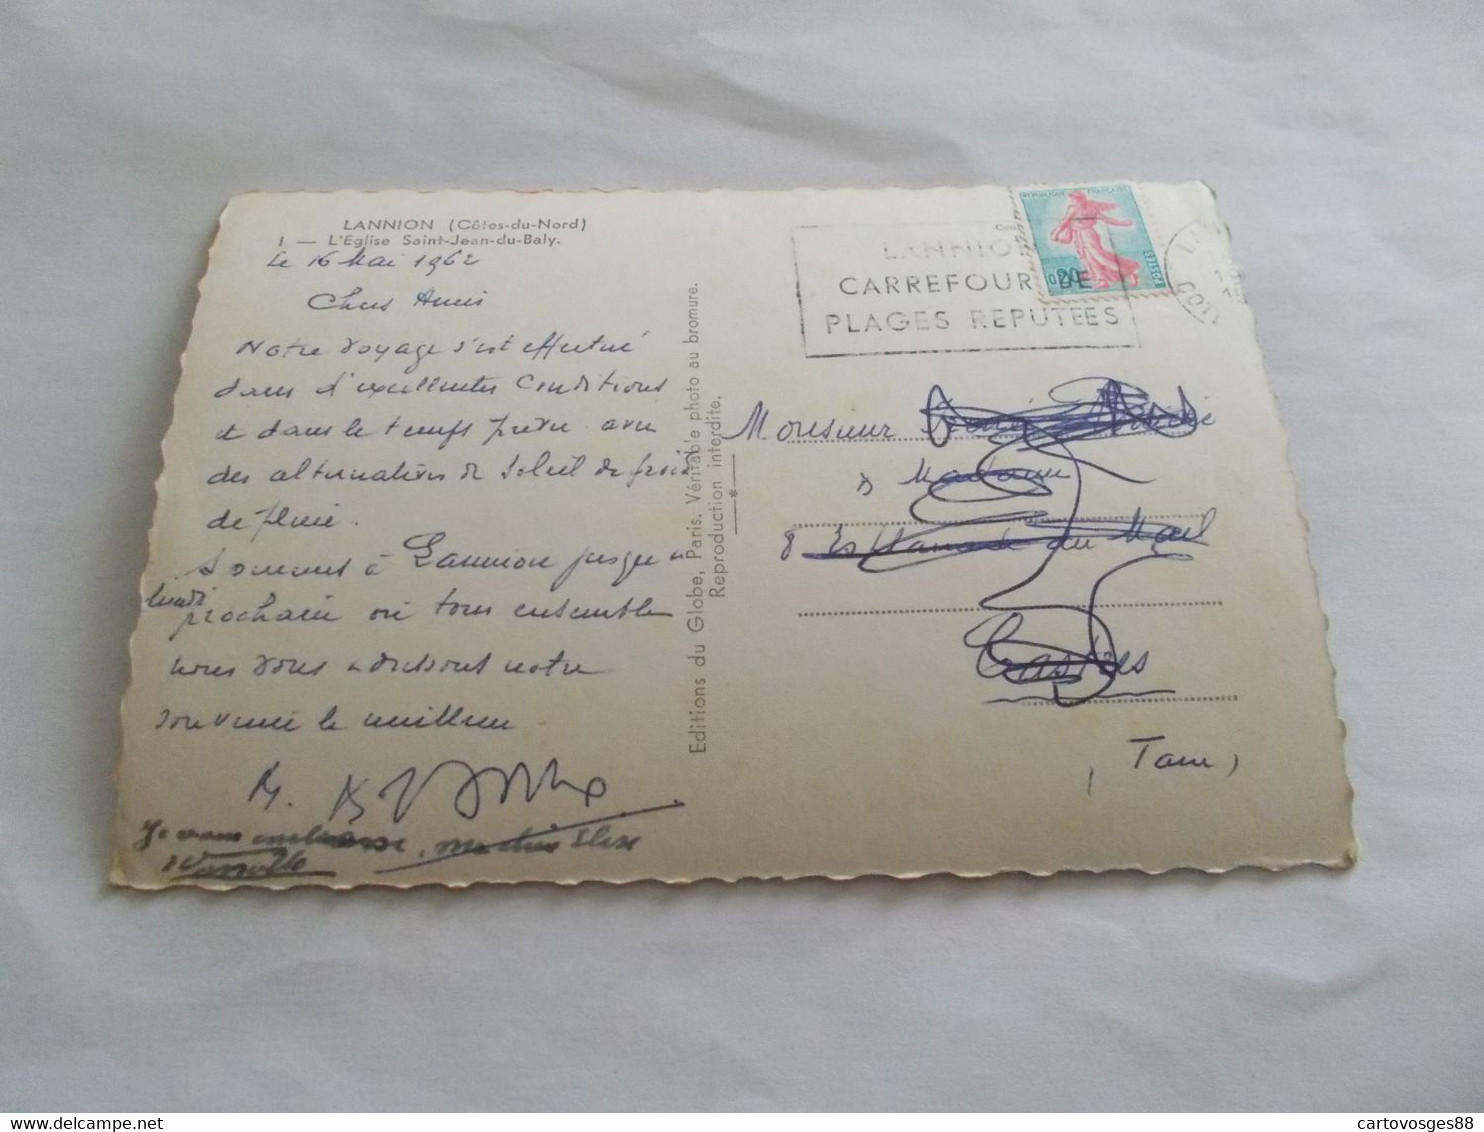 LANNION (Côtes-du-Nord)
1 — L'Eglise Saint-Jean-du-Baly.
Le 16 Mai 1962
Chers Amis
Notre voyage s'est effectué
dans d'excellentes conditions
et dans le temps prévu avec
des alternatives de soleil de froid
de pluie.
Sommes à Lannion jusqu'à
lundi
prochain où tous ensemble
nous vous adressons notre
souvenir le meilleur
Je vous embrasse
Editions du Globe, Paris. Véritable photo au bromure.
Reproduction interdite.
*
LANNION
CARREFOUR DE
PLAGES REPUTEES
REPUBLIQUE FRANÇAISE
0,20
POSTES
Monsieur
& Madame
8 Esplanade du Mail
Castres
(Tarn)
cartovosges88